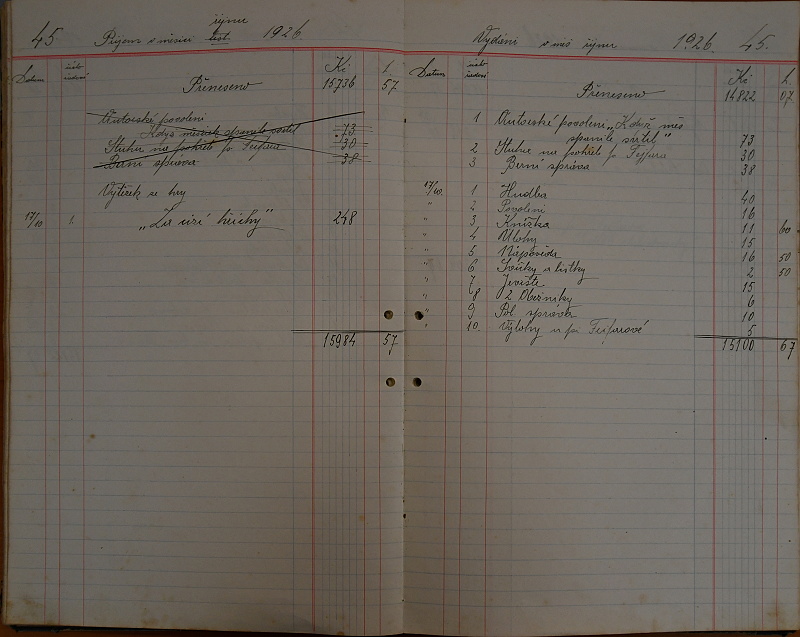 říjnu
45. Příjem v měsíci list. 1926
Datum Kč h
Přeneseno 15736 57
Autorské povolení
Když měsíček spanile svítil 73
Stuha na pohřeb p. Fejfara 30
Berní správa 38
Výtěžek ze hry
17/10 1. „Za cizí hříchy" 248
15984 57
Vydání v měs říjnu 1926. 45.
Datum Kč h
Přeneseno 14822 07
1 Autorské povolení „Když měs
spanile svítil" 73
2 Stuha na pohřeb p Fejfara 30
3. Berní správa 38
17/10. 1 Hudba 40
" 2 Povolení 16
" 3 Knížka 11 60
" 4 Úlohy 15
" 5 Nápověda 16 50
" 6 Svíčky a lístky 2 50
" 7 Jeviště 15
" 8 2 Obecníky 6
" 9 Pol. správa 10
" 10. Výlohy u pí Fejfarové 5
15100 67